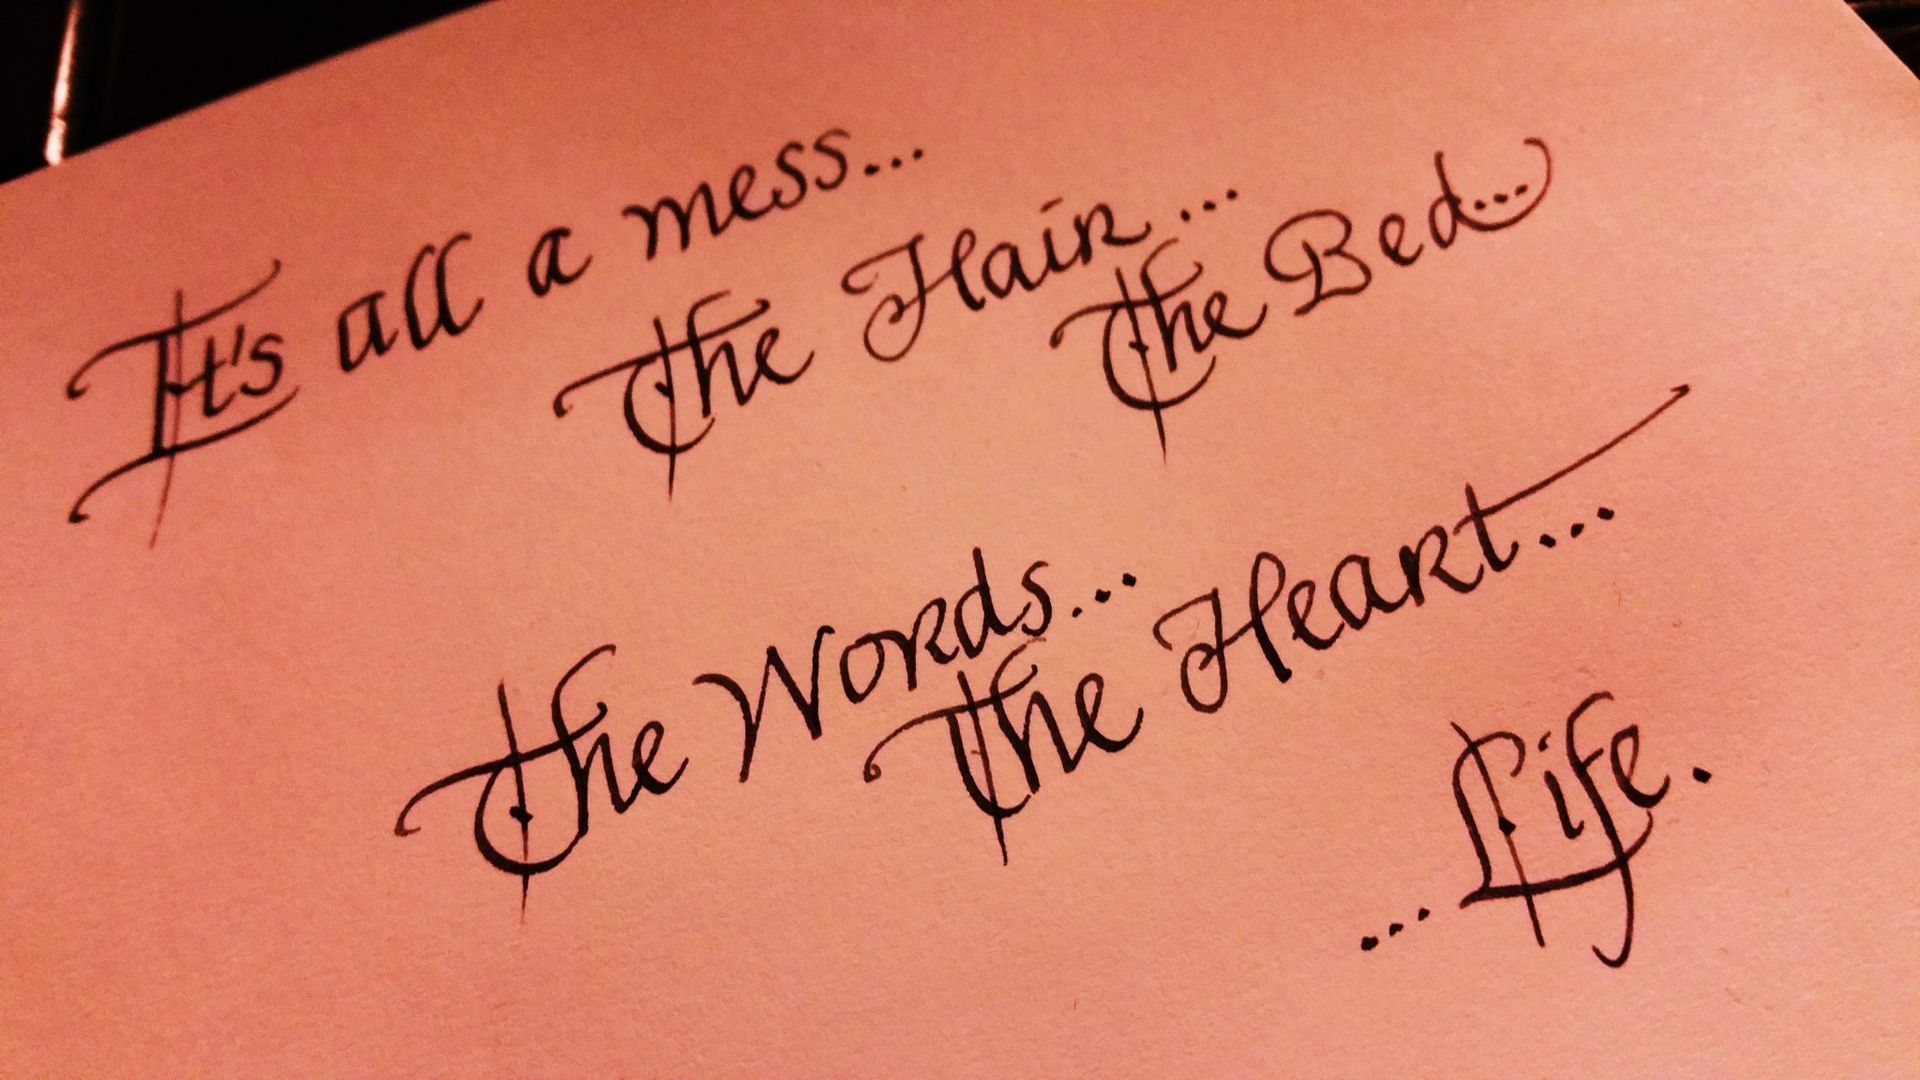 It's all a mess...
The Hair...
The Bed...
The Words...
The Heart...
...Life.